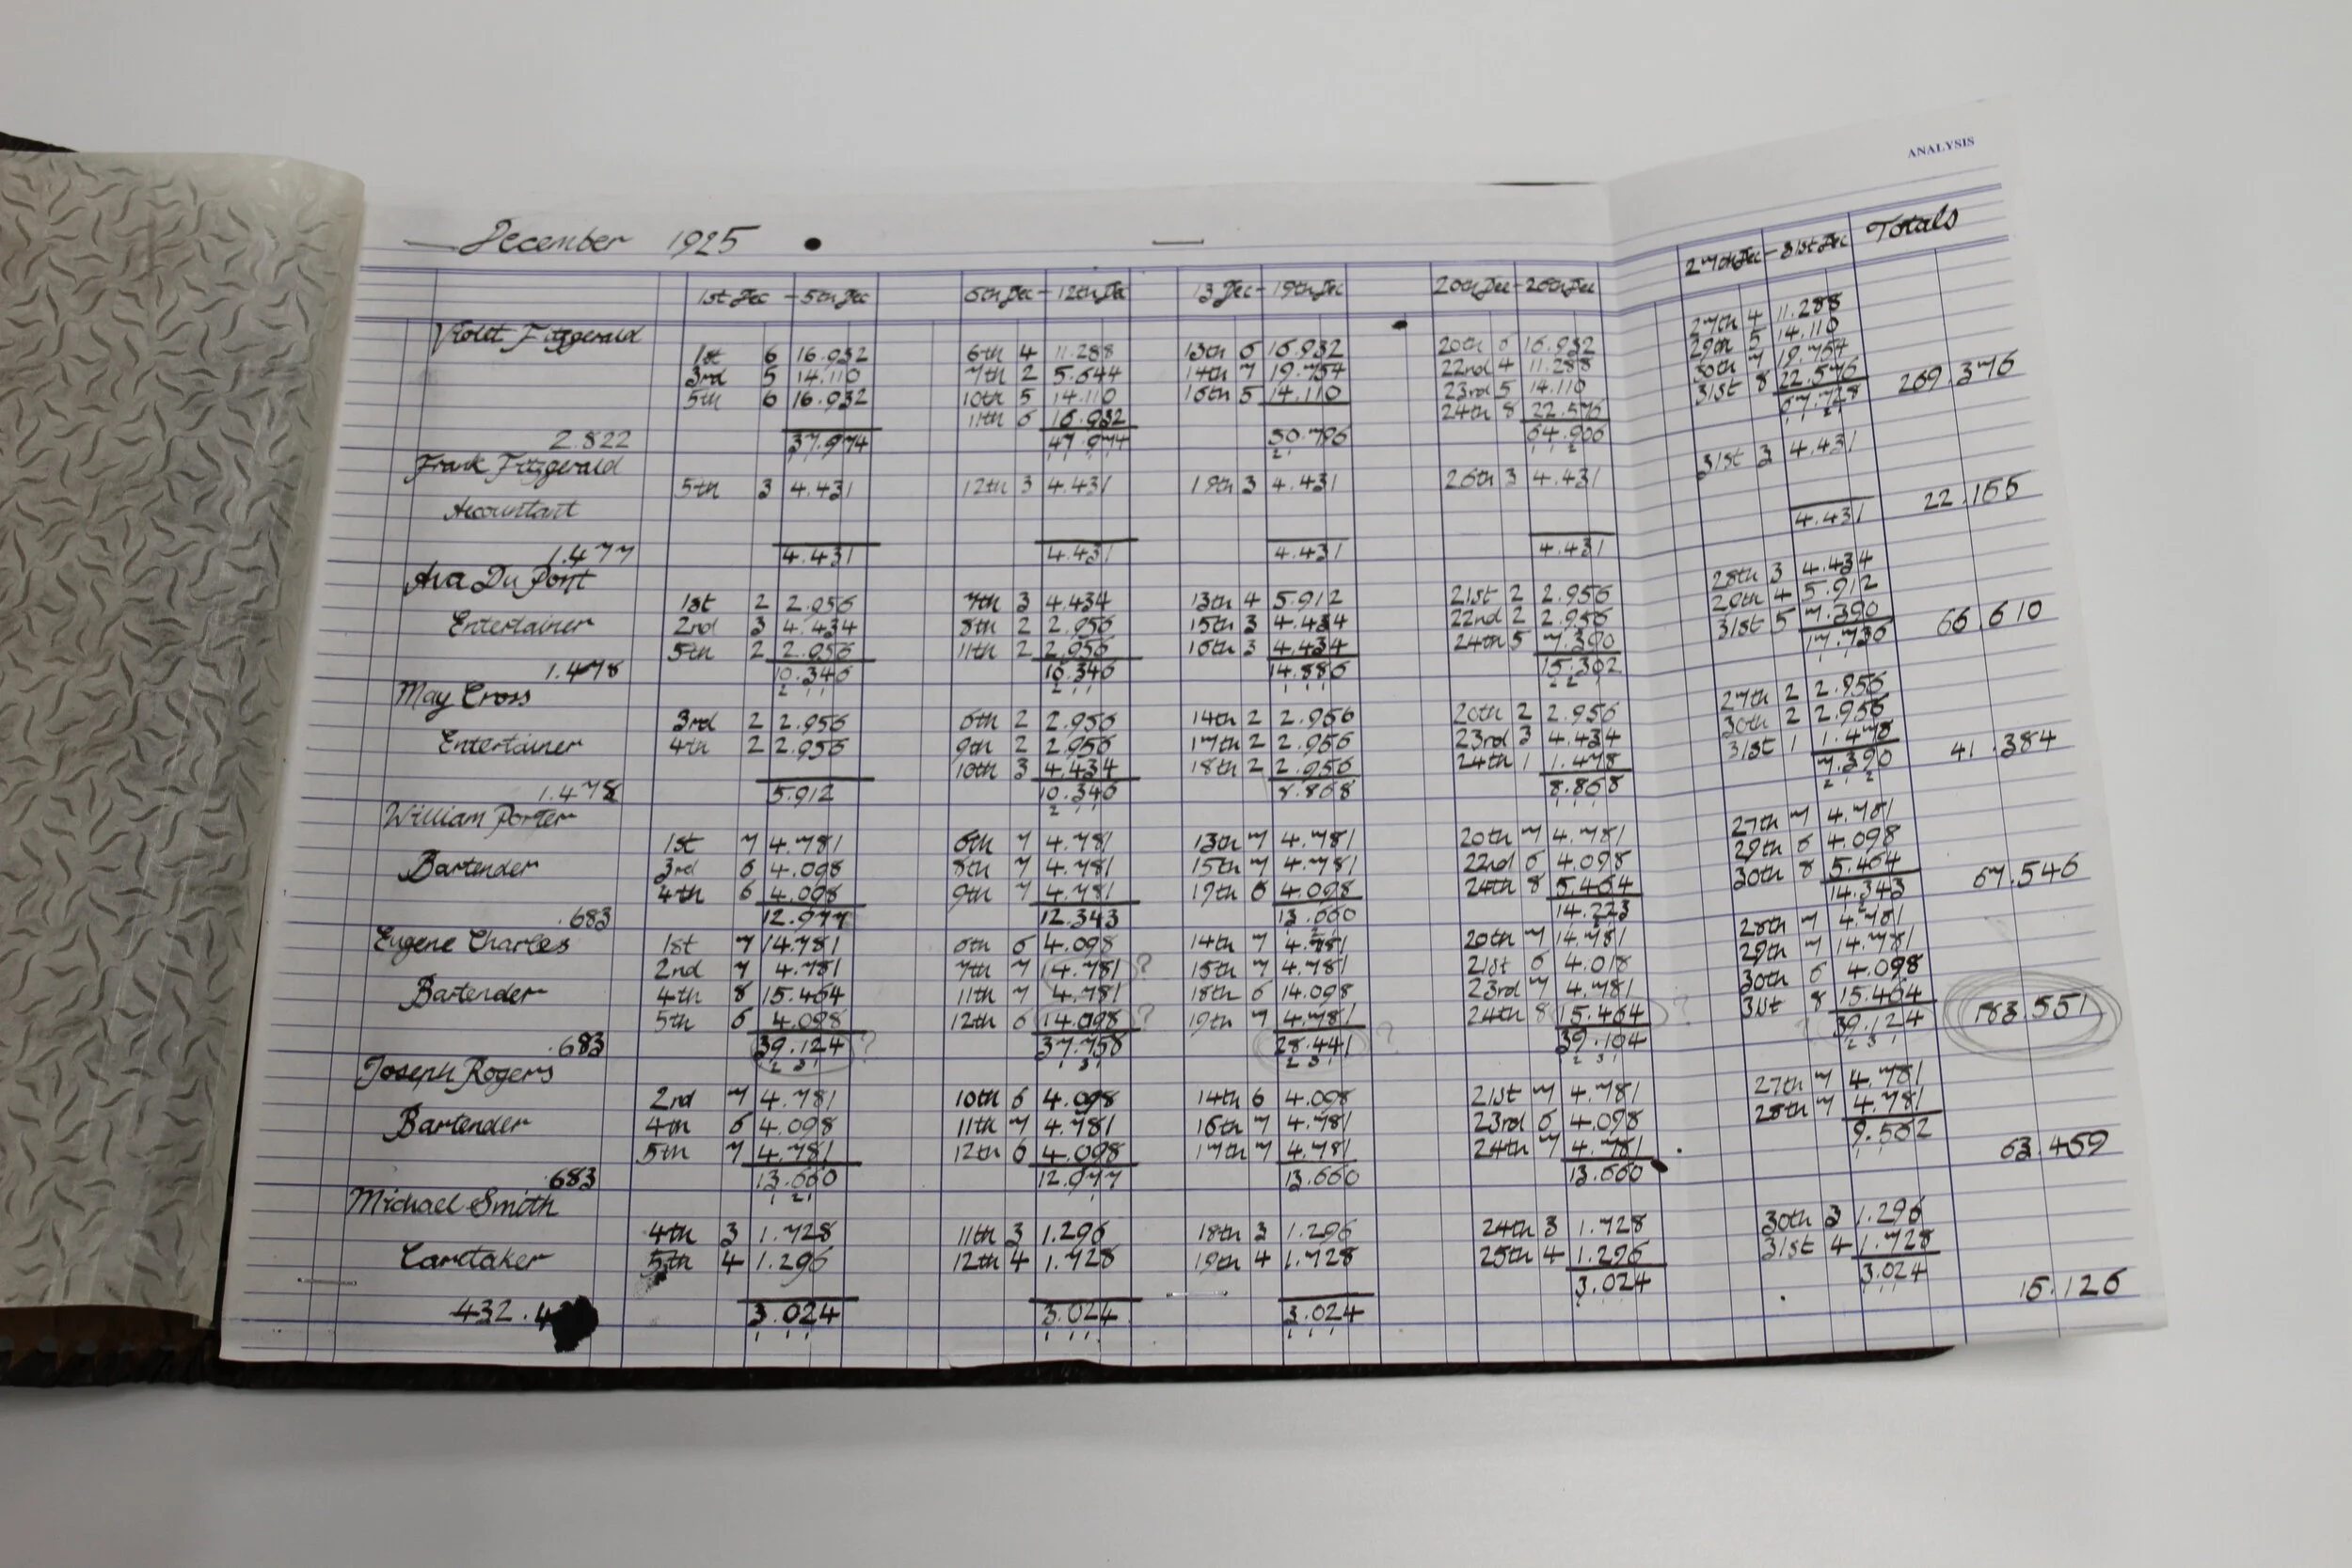 ANALYSIS
December 1925
1st Dec - 5th Dec 6th Dec - 12th Dec 13 Dec - 19th Dec 20th Dec - 26th Dec 27th Dec - 31st Dec Totals
Violet Fitzgerald
1st 6 16.932 6th 4 11.288 13th 6 16.932 20th 6 16.932 27th 4 11.288
3rd 5 14.110 7th 2 5.644 14th 7 19.754 22nd 4 11.288 29th 5 14.110
5th 6 16.932 10th 5 14.110 16th 5 14.110 23rd 5 14.110 30th 7 19.754
11th 6 16.932 24th 8 22.576 31st 8 22.576
2.822 37.974 47.974 50.796 64.906 67.728 269.376
Frank Fitzgerald
5th 3 4.431 12th 3 4.431 19th 3 4.431 26th 3 4.431 31st 3 4.431
Accountant
1.477 4.431 4.431 4.431 4.431 4.431 22.155
Ava Du Pont
1st 2 2.956 7th 3 4.434 13th 4 5.912 21st 2 2.956 28th 3 4.434
Entertainer 2nd 3 4.434 8th 2 2.956 15th 3 4.434 22nd 2 2.956 29th 4 5.912
5th 2 2.956 11th 2 2.956 16th 3 4.434 24th 5 7.390 31st 5 7.390
1.478 10.346 10.346 14.886 15.302 17.736 66.610
May Cross
3rd 2 2.956 6th 2 2.956 14th 2 2.956 20th 2 2.956 27th 2 2.956
Entertainer 4th 2 2.956 9th 2 2.956 17th 2 2.956 23rd 3 4.434 30th 2 2.956
10th 3 4.434 18th 2 2.956 24th 1 1.478 31st 1 1.478
1.478 5.912 10.346 8.868 8.868 7.390 41.384
William Porter
1st 7 4.781 6th 7 4.781 13th 7 4.781 20th 7 4.781 27th 7 4.781
Bartender 3rd 6 4.098 8th 7 4.781 15th 7 4.781 22nd 6 4.098 29th 6 4.098
4th 6 4.098 9th 7 4.781 19th 6 4.098 24th 8 5.464 30th 8 5.464
.683 12.977 12.343 13.660 14.223 14.343 67.546
Eugene Charles 1st 7 14.781 6th 6 4.098 14th 7 4.781 20th 7 14.781 28th 7 4.781
2nd 7 4.781 7th 7 14.781 ? 15th 7 4.781 21st 6 4.018 29th 7 14.781
Bartender 4th 8 15.464 11th 7 4.781 18th 6 14.098 23rd 7 4.781 30th 6 4.098
5th 6 4.098 12th 6 14.098 ? 19th 7 4.781 24th 8 15.464 ? 31st 8 15.464
.683 39.124 ? 37.758 28.441 ? 39.104 39.124 183.551
Joseph Rogers
2nd 7 4.781 10th 6 4.098 14th 6 4.098 21st 7 4.781 27th 7 4.781
Bartender 4th 6 4.098 11th 7 4.781 16th 7 4.781 23rd 6 4.098 28th 7 4.781
5th 7 4.781 12th 6 4.098 17th 7 4.781 24th 7 4.781
.683 13.660 12.977 13.660 13.660 9.562 63.459
Michael Smith
4th 3 1.728 11th 3 1.296 18th 3 1.296 24th 3 1.728 30th 3 1.296
Caretaker 5th 4 1.296 12th 4 1.728 19th 4 1.728 25th 4 1.296 31st 4 1.728
432 3.024 3.024 3.024 3.024 3.024 15.126